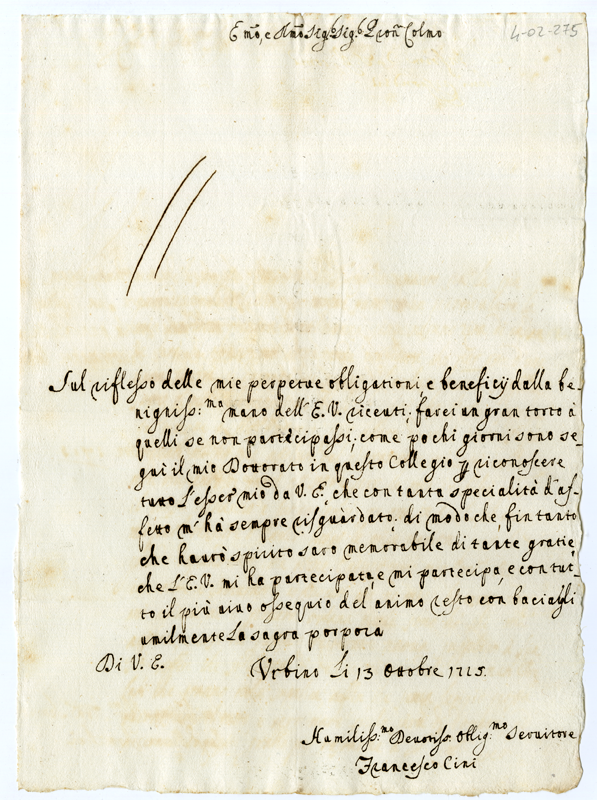 Emo, e Rmo Sigr Sigr Pron Colmo
4-02-275
Sul riflesso delle mie perpetue obligationi e beneficij dalla be-
nigniss:ma mano dell'E.V. riceuti, farei un gran torto à
quelli se non partecipassi, come pochi giorni sono se-
guì il mio Dottorato in questo Collegio p riconoscere
tutto l'esser mio da V.E. che con tanta specialità d'af-
fetto m'hà sempre risguardato; di modo che, fin tanto
che haurò spirito sarò memorabile di tante gratie,
che l'E.V. mi ha partecipata, e mi partecipa, e con tut-
to il più uiuo ossequio del'animo resto con baciarli
umilmente la sagra porpora
Di V.E.
Urbino li 13 Ottobre 1715.
Humiliss:mo Deuotiss. Oblig:mo Seruitore
Francesco Cini